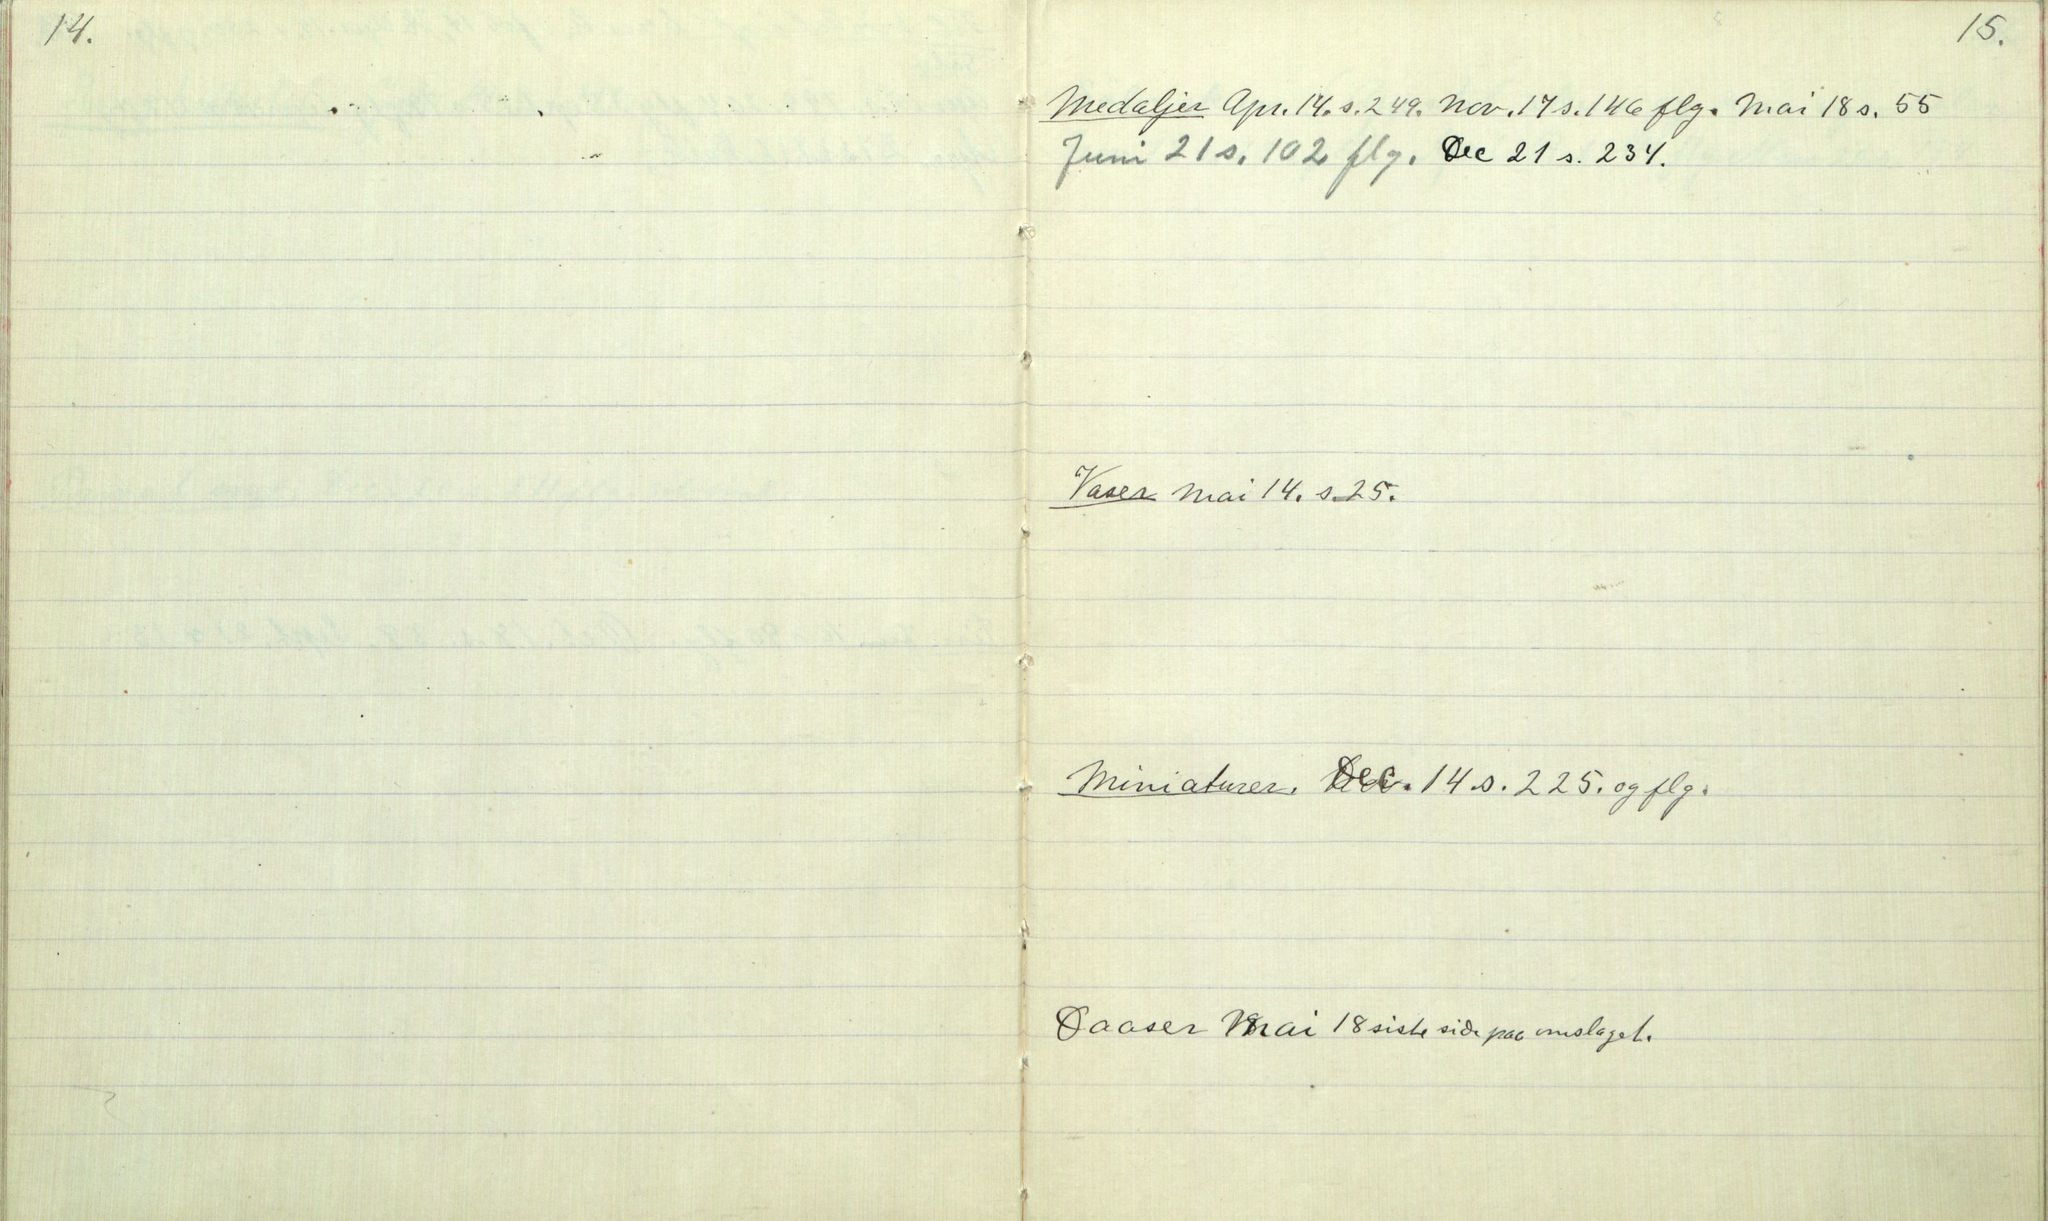 14.
15.
Medaljer Apr. 14. s. 249. Nov. 17 s. 146 flg. Mai 18 s. 55
Juni 21 s. 102 flg. Dec 21 s. 234.
Vaser Mai 14. s. 25.
Miniaturer. Dec. 14 s. 225. og flg.
Daaser Mai 18 siste side paa omslaget.